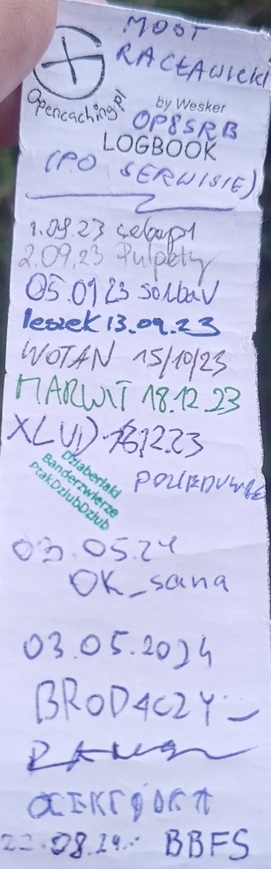 MOST
RACŁAWICKI
Opencaching.pl
by Wesker
OP8SRB
LOGBOOK
(PO SERWISIE)
1.09.23
2.09.23 Pulpety
05.09 23
leszek 13.09.23
WOTAN 15/10/23
MARWIT 18.12.23
XLVI)
Dziaberlaki
Banderzwierze
PtakDziubDziub
03.05.24
OK_sana
03.05.2024
BRODACZY
22.08.24. BBFS